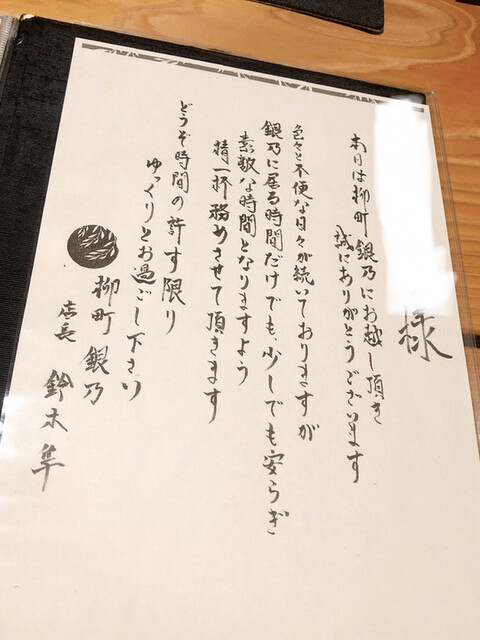 様
本日は柳町 銀乃にお越し頂き
誠にありがとうございます
色々と不便な日々が続いておりますが
銀乃に居る時間だけでも、少しでも安らぎ
素敵な時間となりますよう
精一杯務めさせて頂きます
どうぞ時間の許す限り
ゆっくりとお過ごし下さい
柳町 銀乃
店長 鈴木 隼